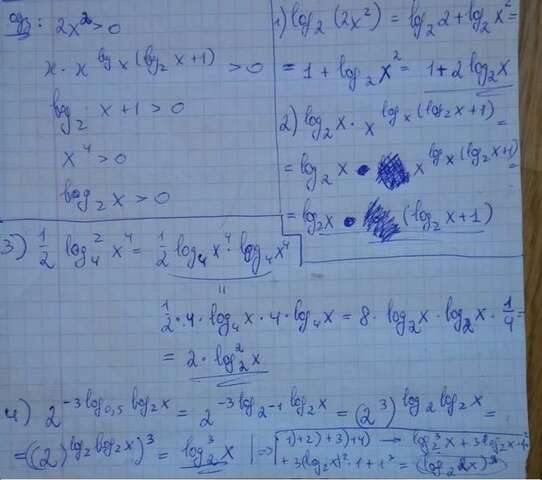 одз: 2x² > 0
x · x^{log_x (log₂ x + 1)} > 0
log₂ x + 1 > 0
x⁴ > 0
log₂ x > 0
1) log₂ (2x²) = log₂ 2 + log₂ x² =
= 1 + log₂ x² = 1 + 2 log₂ x
2) log₂ x · x^{log_x (log₂ x + 1)} =
= log₂ x · x^{log_x (log₂ x + 1)} =
= log₂ x · (log₂ x + 1)
3) ½ log₄² x⁴ = ½ log₄ x⁴ · log₄ x⁴
=
½ · 4 · log₄ x · 4 · log₄ x = 8 · log₂ x · log₂ x · ¼ =
= 2 · log₂² x
4) 2^{-3 log_{0,5} log₂ x} = 2^{-3 log_{2^{-1}} log₂ x} = (2³)^{log₂ log₂ x} =
= ((2)^{log₂ log₂ x})³ = log₂³ x | ⇒ 1) + 2) + 3) + 4) → log₂³ x + 3 log₂ x · 1²
+ 3 (log₂ x)² · 1 + 1³ = (log₂ 2x)³